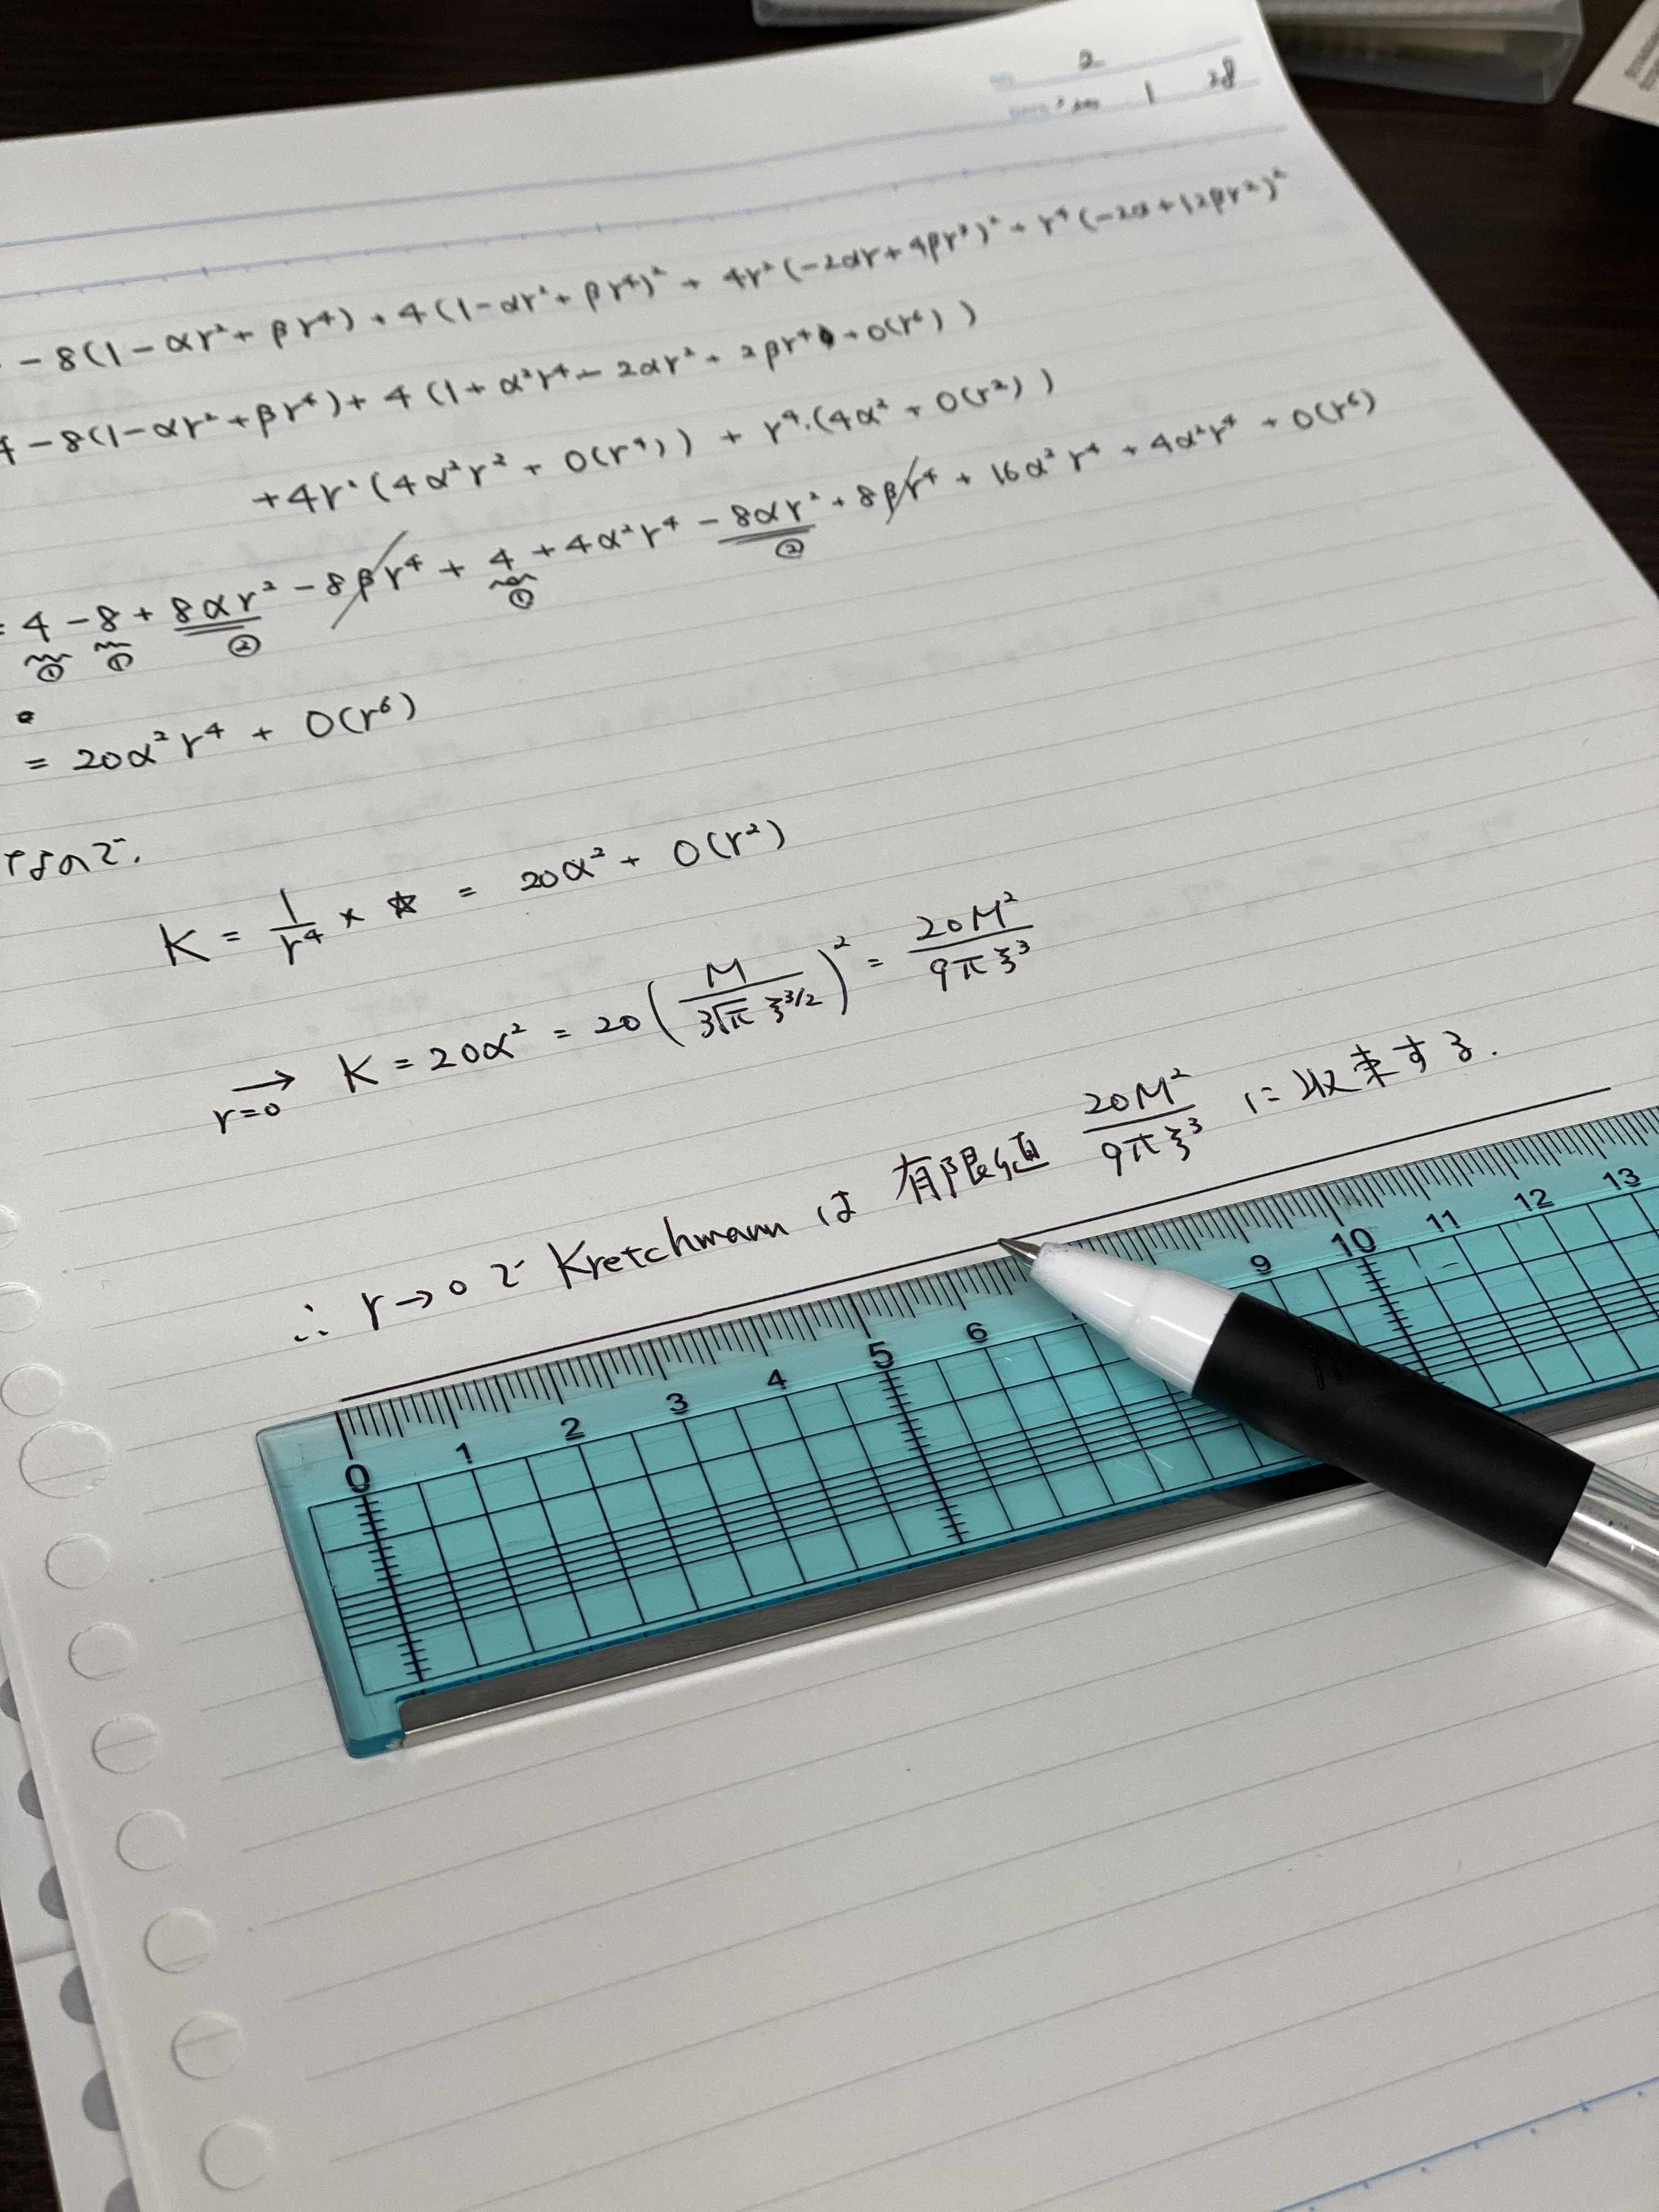 2
1 28
- 8(1 - αr² + βr⁴) + 4(1 - αr² + βr⁴)² + 4r²(-2αr + 4βr³)² + r⁴(-2α + 12βr²)²
4 - 8(1 - αr² + βr⁴) + 4(1 + α²r⁴ - 2αr² + 2βr⁴ + O(r⁶))
+ 4r²(4α²r² + O(r⁴)) + r⁴·(4α² + O(r²))
= 4 - 8 + 8αr² - 8βr⁴ + 4 + 4α²r⁴ - 8αr² + 8βr⁴ + 16α²r⁴ + 4α²r⁴ + O(r⁶)
① ① ② ① ②
= 20α²r⁴ + O(r⁶)
なので.
K = 1/r⁴ × ☆ = 20α² + O(r²)
→ r=0 K = 20α² = 20(M/3√π ξ^(3/2))² = 20M²/9πξ³
∴ r→0で Kretchmann は 有限値 20M²/9πξ³ に収束する.
0 1 2 3 4 5 6 9 10 11 12 13